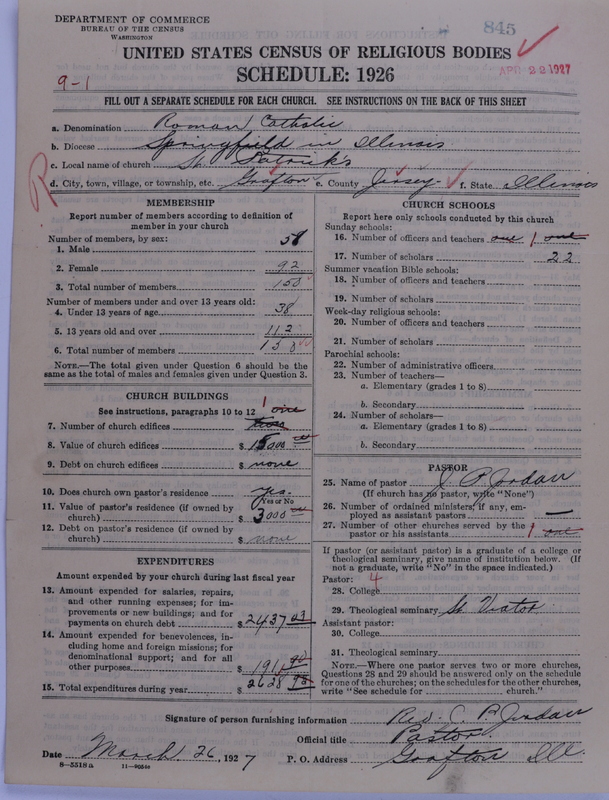 DEPARTMENT OF COMMERCE
BUREAU OF THE CENSUS
WASHINGTON
845
UNITED STATES CENSUS OF RELIGIOUS BODIES
SCHEDULE: 1926
APR 22 1927
9-1
FILL OUT A SEPARATE SCHEDULE FOR EACH CHURCH. SEE INSTRUCTIONS ON THE BACK OF THIS SHEET
a. Denomination Roman Catholic
b. Diocese Springfield in Illinois
c. Local name of church St. Patrick's
d. City, town, village, or township, etc. Grafton e. County Jersey f. State Illinois
MEMBERSHIP
Report number of members according to definition of
member in your church
Number of members, by sex:
1. Male 58
2. Female 92
3. Total number of members 150
Number of members under and over 13 years old:
4. Under 13 years of age 38
5. 13 years old and over 112
6. Total number of members 150
NOTE.—The total given under Question 6 should be
the same as the total of males and females given under Question 3.
CHURCH BUILDINGS
See instructions, paragraphs 10 to 12
1 one
7. Number of church edifices
8. Value of church edifices $ 15000
9. Debt on church edifices $ none
10. Does church own pastor's residence yes.
(Yes or No)
11. Value of pastor's residence (if owned by
church) $ 3000
12. Debt on pastor's residence (if owned by
church) $ none
EXPENDITURES
Amount expended by your church during last fiscal year
13. Amount expended for salaries, repairs,
and other running expenses; for im-
provements or new buildings; and for
payments on church debt $ 2437 03
14. Amount expended for benevolences, in-
cluding home and foreign missions; for
denominational support; and for all
other purposes 191 90
15. Total expenditures during year $ 2628 93
CHURCH SCHOOLS
Report here only schools conducted by this church
Sunday schools:
16. Number of officers and teachers one 1 one
17. Number of scholars 22
Summer vacation Bible schools:
18. Number of officers and teachers
19. Number of scholars
Week-day religious schools:
20. Number of officers and teachers
21. Number of scholars
Parochial schools:
22. Number of administrative officers
23. Number of teachers—
a. Elementary (grades 1 to 8)
b. Secondary
24. Number of scholars—
a. Elementary (grades 1 to 8)
b. Secondary
PASTOR
25. Name of pastor P. Jordan
(If church has no pastor, write "None")
26. Number of ordained ministers, if any, em-
ployed as assistant pastors —
27. Number of other churches served by the
pastor or his assistants 1 one
If pastor (or assistant pastor) is a graduate of a college or
theological seminary, give name of institution below. (If
not a graduate, write "No" in the space indicated.)
Pastor: 4
28. College
29. Theological seminary St. Viator
Assistant pastor:
30. College
31. Theological seminary
NOTE.—Where one pastor serves two or more churches,
Questions 28 and 29 should be answered only on the schedule
for one of the churches; on the schedules for the other churches,
write "See schedule for church."
Signature of person furnishing information Rev. C. P. Jordan
Official title Pastor
Date March 26, 1927 P. O. Address Grafton Ill.
8—5518a 11—96540